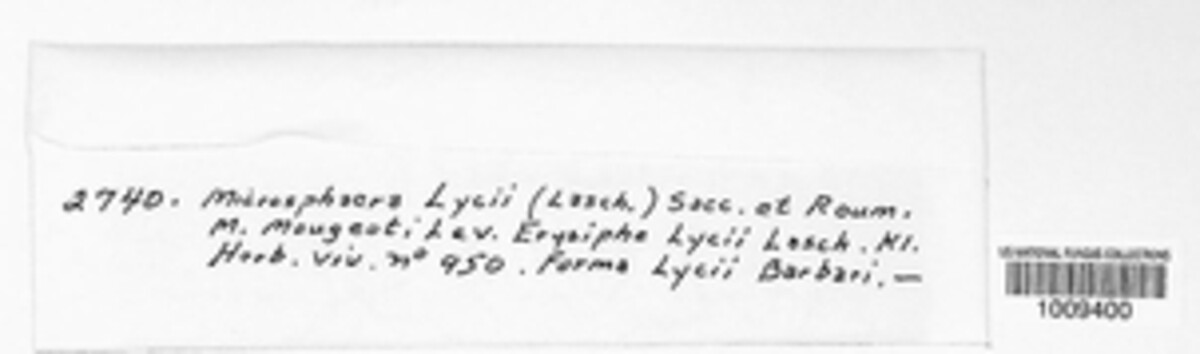 2740. Microsphaera Lycii (Lasch.) Sacc. et Roum.
M. Mougeoti Lev. Erysiphe Lycii Lasch. Kl.
Herb. viv. no 950. Forma Lycii Barbari. —
US NATIONAL FUNGUS COLLECTIONS
1009400